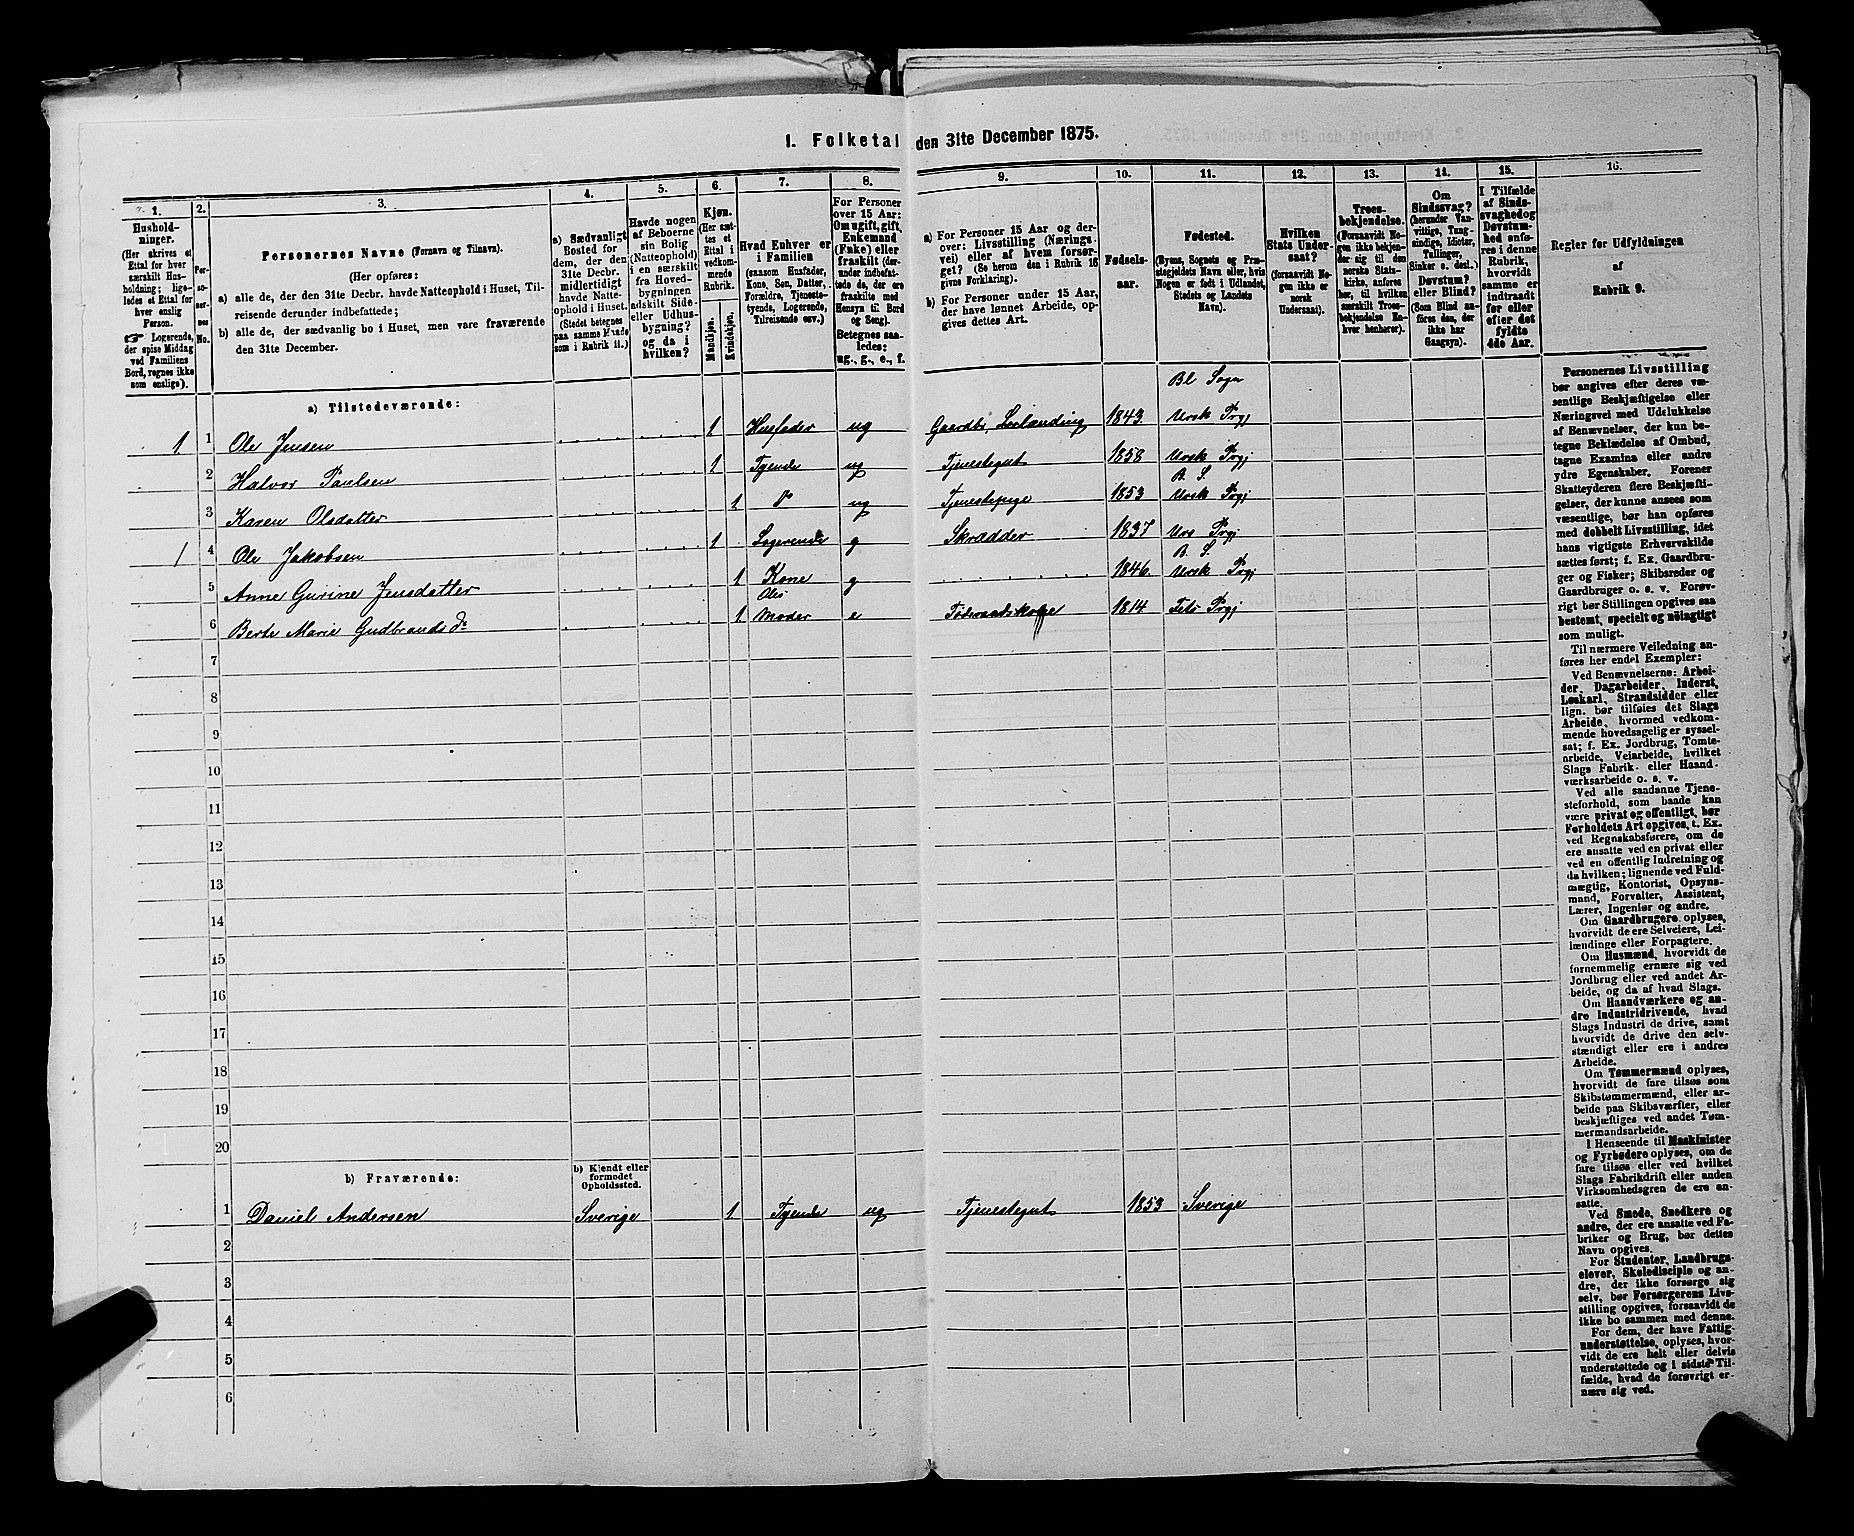 1. Folketal den 31te December 1875.
1. 2. 3. 4. 5. 6. 7. 8. 9. 10. 11. 12. 13. 14. 15. 16.
Hushold-
ninger.
(Her skrives et
Ettal for hver
særskilt Hus-
holdning; lige-
ledes et Ettal for
hver enslig
Person.
☞ Logerende,
der spise Middag
ved Familiens
Bord, regnes ikke
som enslige).
Per-
so-
ner-
nes
No.
Personernes Navne (Fornavn og Tilnavn).
(Her opføres:
a) alle de, der den 31te Decbr. havde Natteophold i Huset, Til-
reisende derunder indbefattede;
b) alle de, der sædvanlig bo i Huset, men vare fraværende
den 31te December.
a) Sædvanligt
Bosted for
dem, der den
31te Decbr.
midlertidigt
havde Natte-
ophold i Huset.
(Stedet betegnes
paa samme Maade
som i Rubrik 11.)
Havde nogen
af Beboerne
sin Bolig
(Natteophold)
i en særskilt
fra Hoved-
bygningen
adskilt Side-
eller Udhus-
bygning?
og da i
hvilken?
Kjøn.
(Her sæt-
tes et
Ettal i
vedkom-
mende
Rubrik.
Mandkjøn.
Kvindekjøn.
Hvad Enhver er
i Familien
(saasom Husfader,
Kone, Søn, Datter,
Forældre, Tjeneste-
tyende, Logerende,
Tilreisende osv.)
For Personer
over 15 Aar:
Om ugift, gift,
Enkemand
(Enke) eller
fraskilt (der-
under indbefat-
tede de, der ere
fraskilte med
Hensyn til Bord
og Seng).
Betegnes saa-
ledes:
ug., g., e., f.
a) For Personer 15 Aar og der-
over: Livsstilling (Nærings-
vei) eller af hvem forsør-
get? (Se herom den i Rubrik 16
givne Forklaring).
b) For Personer under 15 Aar,
der have lønnet Arbeide, op-
gives dettes Art.
Fødsels-
aar.
Fødested.
(Byens, Sognets og Præ-
stegjeldets Navn eller, hvis
Nogen er født i Udlandet,
Stedets og Landets
Navn).
Hvilken
Stats Under-
saat?
(forsaavidt No-
gen ikke er
norsk
Undersaat).
Troes-
bekjendelse.
(Forsaavidt No-
gen ikke bekjen-
der sig til den
norske Stats-
kirke, anføres
her, til hvilken
særskilt Troes-
bekjendelse En-
hver henhører).
Om
Sindssvag?
(herunder Van-
vittige, Tung-
sindige, Idioter,
Tullinger,
Sinker o. desl.)
Døvstum?
eller Blind?
(Som Blind an-
føres den, der
ikke har
Gangsyn).
I Tilfælde
af Sinds-
svaghed og
Døvstum-
hed anfø-
res i denne
Rubrik,
hvorvidt
samme er
indtraadt
før eller
efter det
fyldte
4de Aar.
Regler for Udfyldningen
af
Rubrik 9.
a) Tilstedeværende:
Bl Sogn
1 1 Ole Jensen 1 Husfader ug Gaardbr. Leilænding 1843. Ursk Prgj
2 Halvor Paulsen 1 Tyende ug Tjenestegut 1858 Ursk Prgj
B. S.
3 Karen Olsdatter 1 " ug Tjenestepige 1853 Ursk Prgj
1 4 Ole Jakobsen 1 Logerende g Skrædder 1837 Urs Prgj
B. S.
5 Anne Gurine Jensdatter 1 Kone g 1846. Ursk Prgj
Oles
6 Berte Marie Gudbrands dr 1 Moder e Føderaadskone 1814 Fets Prgj
7
8
9
10
11
12
13
14
15
16
17
18
19
20
b) Fraværende:
b) Kjendt eller
formodet
Opholdssted.
1 Daniel Andersen Sverige 1 Tyende ug Tjenestegut 1853 Sverige
2
3
4
5
6
Personernes Livsstilling
bør angives efter deres væ-
sentlige Beskjæftigelse eller
Næringsvei med Udelukkelse
af Benævnelser, der kun be-
tegne Beklædelse af Ombud,
tagne Examina eller andre
ydre Egenskaber. Forener
Skatteyderen flere Beskjæfti-
gelser, der kunne ansees som
væsentlige, bør han opføres
med dobbelt Livsstilling, idet
hans vigtigste Erhvervskilde
sættes først; f. Ex. Gaardbru-
ger og Fisker; Skibsreder og
Gaardbruger o. s. v. Forøv-
rigt bør Stillingen opgives saa
bestemt, specielt og nöiagtigt
som muligt.
Til nærmere Veiledning an-
føres her endel Exempler:
Ved Benævnelserne: Arbei-
der, Dagarbeider, Inderst,
Løskarl, Strandsidder eller
lign. bør tilføies det Slags
Arbeide, hvormed vedkom-
mende hovedsagelig er syssel-
sat; f. Ex. Jordbrug, Tomte-
arbeide, Veiarbeide, hvilket
Slags Fabrik- eller Haand-
værksarbeide o. s. v.
Ved alle saadanne Tjene-
steforhold, som baade kan
være privat og offentligt, bør
Forholdets Art opgives, t. Ex.
ved Regnskabsførere, om de
ere ansatte ved en privat eller
ved en offentlig Indretning og
da hvilken; lignende ved Fuld-
mægtig, Kontorist, Opsyns-
mand, Forvalter, Assistent,
Lærer, Ingeniør og andre.
Om Gaardbrugere oplyses,
hvorvidt de ere Selveiere, Lei-
lændinge eller Forpagtere.
Om Husmænd, hvorvidt de
fornemmelig ernære sig ved
Jordbrug eller ved andet Ar-
beide, og da af hvad Slags.
Om Haandværkere og an-
dre Industridrivende, hvad
Slags Industri de drive, samt
hvorvidt de drive den selv-
stændigt eller ere i andres
Arbeide.
Om Tømmermænd oplyses,
hvorvidt de fare tilsøs som
Skibstømmermænd, eller ar-
beide paa Skibsværfter, eller
beskjæftiges ved andet Tøm-
mermandsarbeide.
I Henseende til Maskinister
og Fyrbødere oplyses, om de
fare tilsøs eller ved hvilket
Slags Fabrikdrift eller anden
Virksomhedsgren de ere an-
satte.
Ved Smede, Snedkere og
andre, der ere ansatte ved Fa-
briker og Brug, bør dettes
Navn opgives.
For Studenter, Landbrugs-
elever, Skoledisciple og an-
dre, der ikke forsørge sig
selv, bør Forsørgerens Livs-
stilling opgives, forsaavidt de
ikke bo sammen med denne.
For dem, der have Fattig-
understøttelse, oplyses, hvor-
vidt de ere helt eller delvis
understøttede og i sidste Til-
fælde, hvad de forøvrigt er-
nære sig ved.